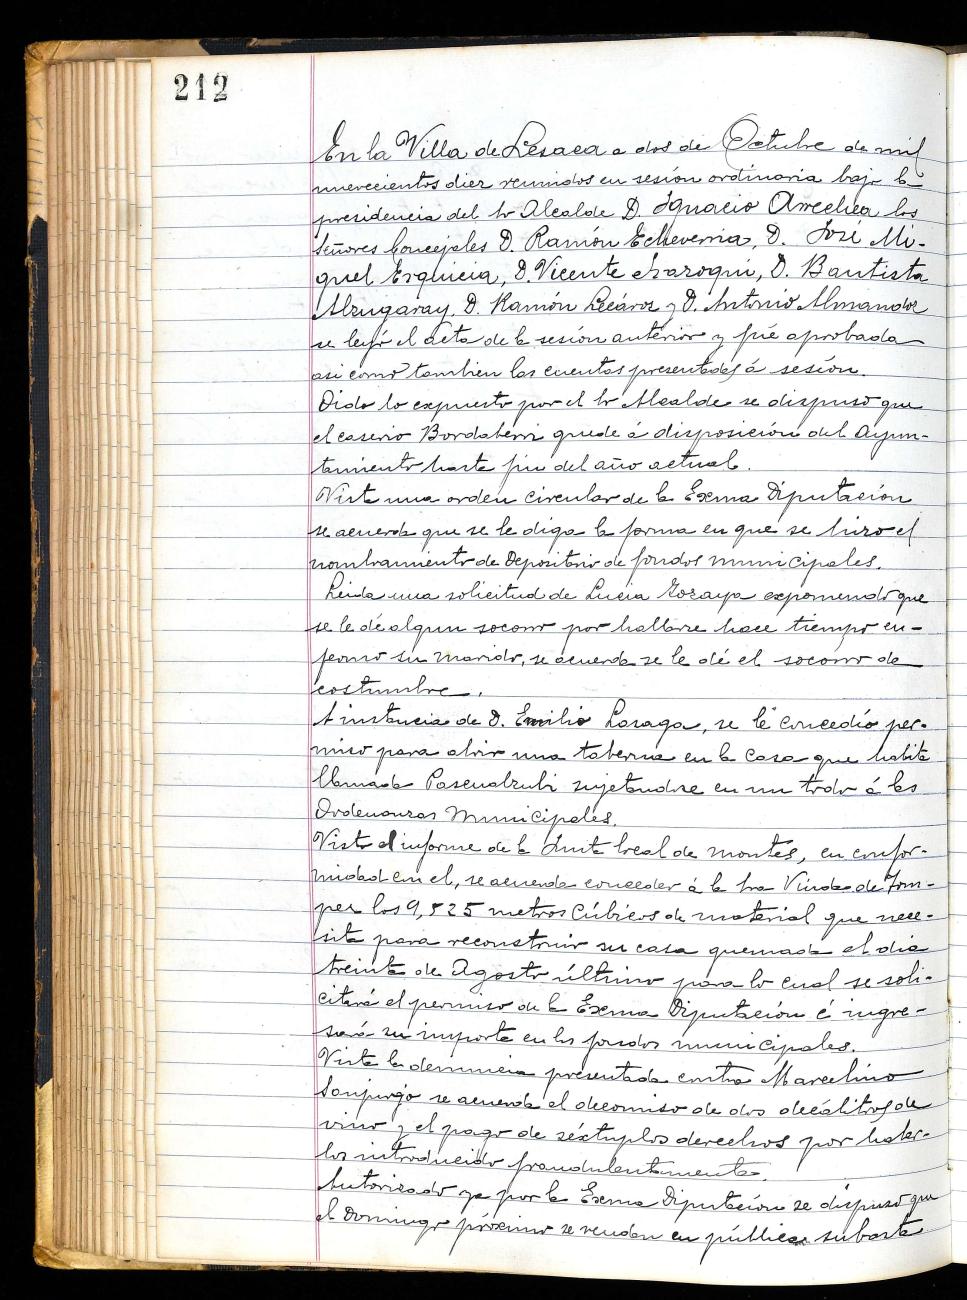 212
En la Villa de Lesaca a dos de Octubre de mil
nuevecientos diez reunidos en sesión ordinaria bajo la
presidencia del Sr Alcalde D. Ignacio Arrechea los
Señores Concejales D. Ramón Echeverria, D. José Mi-
guel Erquicia, D. Vicente Irazoqui, D. Bautista
Alzugaray, D. Ramón Lecároz y D. Antonio Almandoz
se leyó el acta de la sesión anterior y fué aprobada
asi como tambien las cuentas presentadas á sesión.
Oido lo expuesto por el Sr Alcalde se dispuso que
el caserio Bordaberri quede á disposición del Ayun-
tamiento hasta fin del año actual.
Vista una orden circular de la Exma Diputación
se acuerda que se le diga la forma en que se hizo el
nombramiento de Depositario de fondos municipales.
Leida una solicitud de Lucia Goraya exponiendo que
se le dé algun socorro por hallarse hace tiempo en-
fermo su marido, se acuerda se le dé el socorro de
costumbre.
A instancia de D. Emilio Lasaga, se le concedío per-
miso para abrir una taberna en la casa que habita
llamada Pascualzubi sujetandose en un todo á las
Ordenanzas Municipales.
Visto el informe de la Junta local de montes, en confor-
midad con el, se acuerda conceder á la Sra Viuda de
los 9,525 metros cúbicos de material que nece-
sita para reconstruir su casa quemada el dia
treinta de Agosto último para lo cual se soli-
citará el permiso de la Exma Diputación é ingre-
sará su importe en los fondos municipales.
Vista la denuncia presentada contra Marcelino
Sanjurgo se acuerda el decomiso de dos decálitros de
vino y el pago de séxtuplos derechos por haber-
los introducido fraudulentamente.
Autorizado ya por la Exma Diputacion se dispuso que
el Domingo próximo se vendan en pública subasta